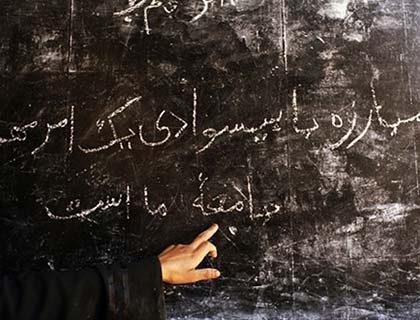 مبارزه با بیسوادی یک امر مهم
جامعهٔ ما است